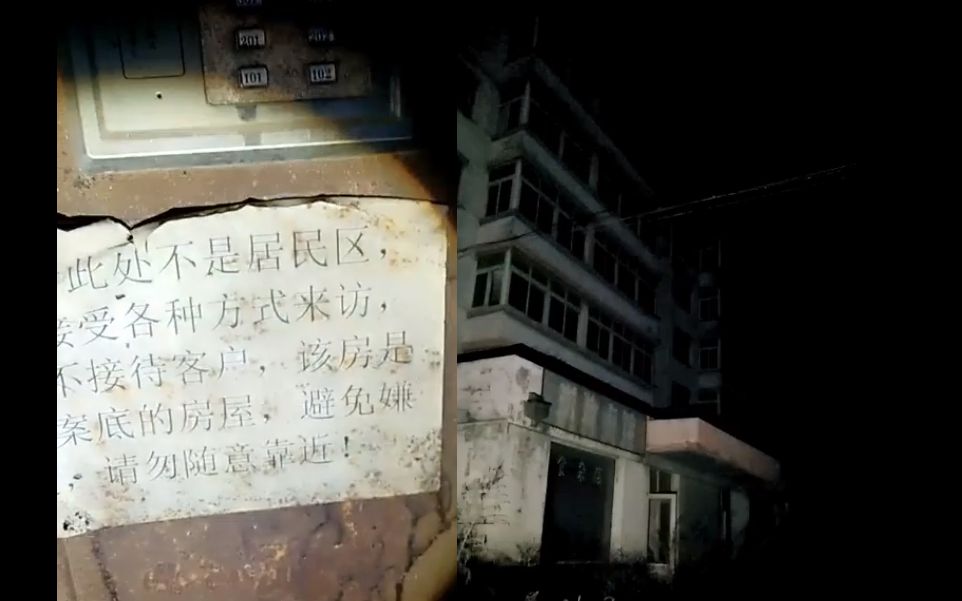 201
101 102
此处不是居民区，
接受各种方式来访，
不接待客户，该房是
案底的房屋，避免嫌
，请勿随意靠近！